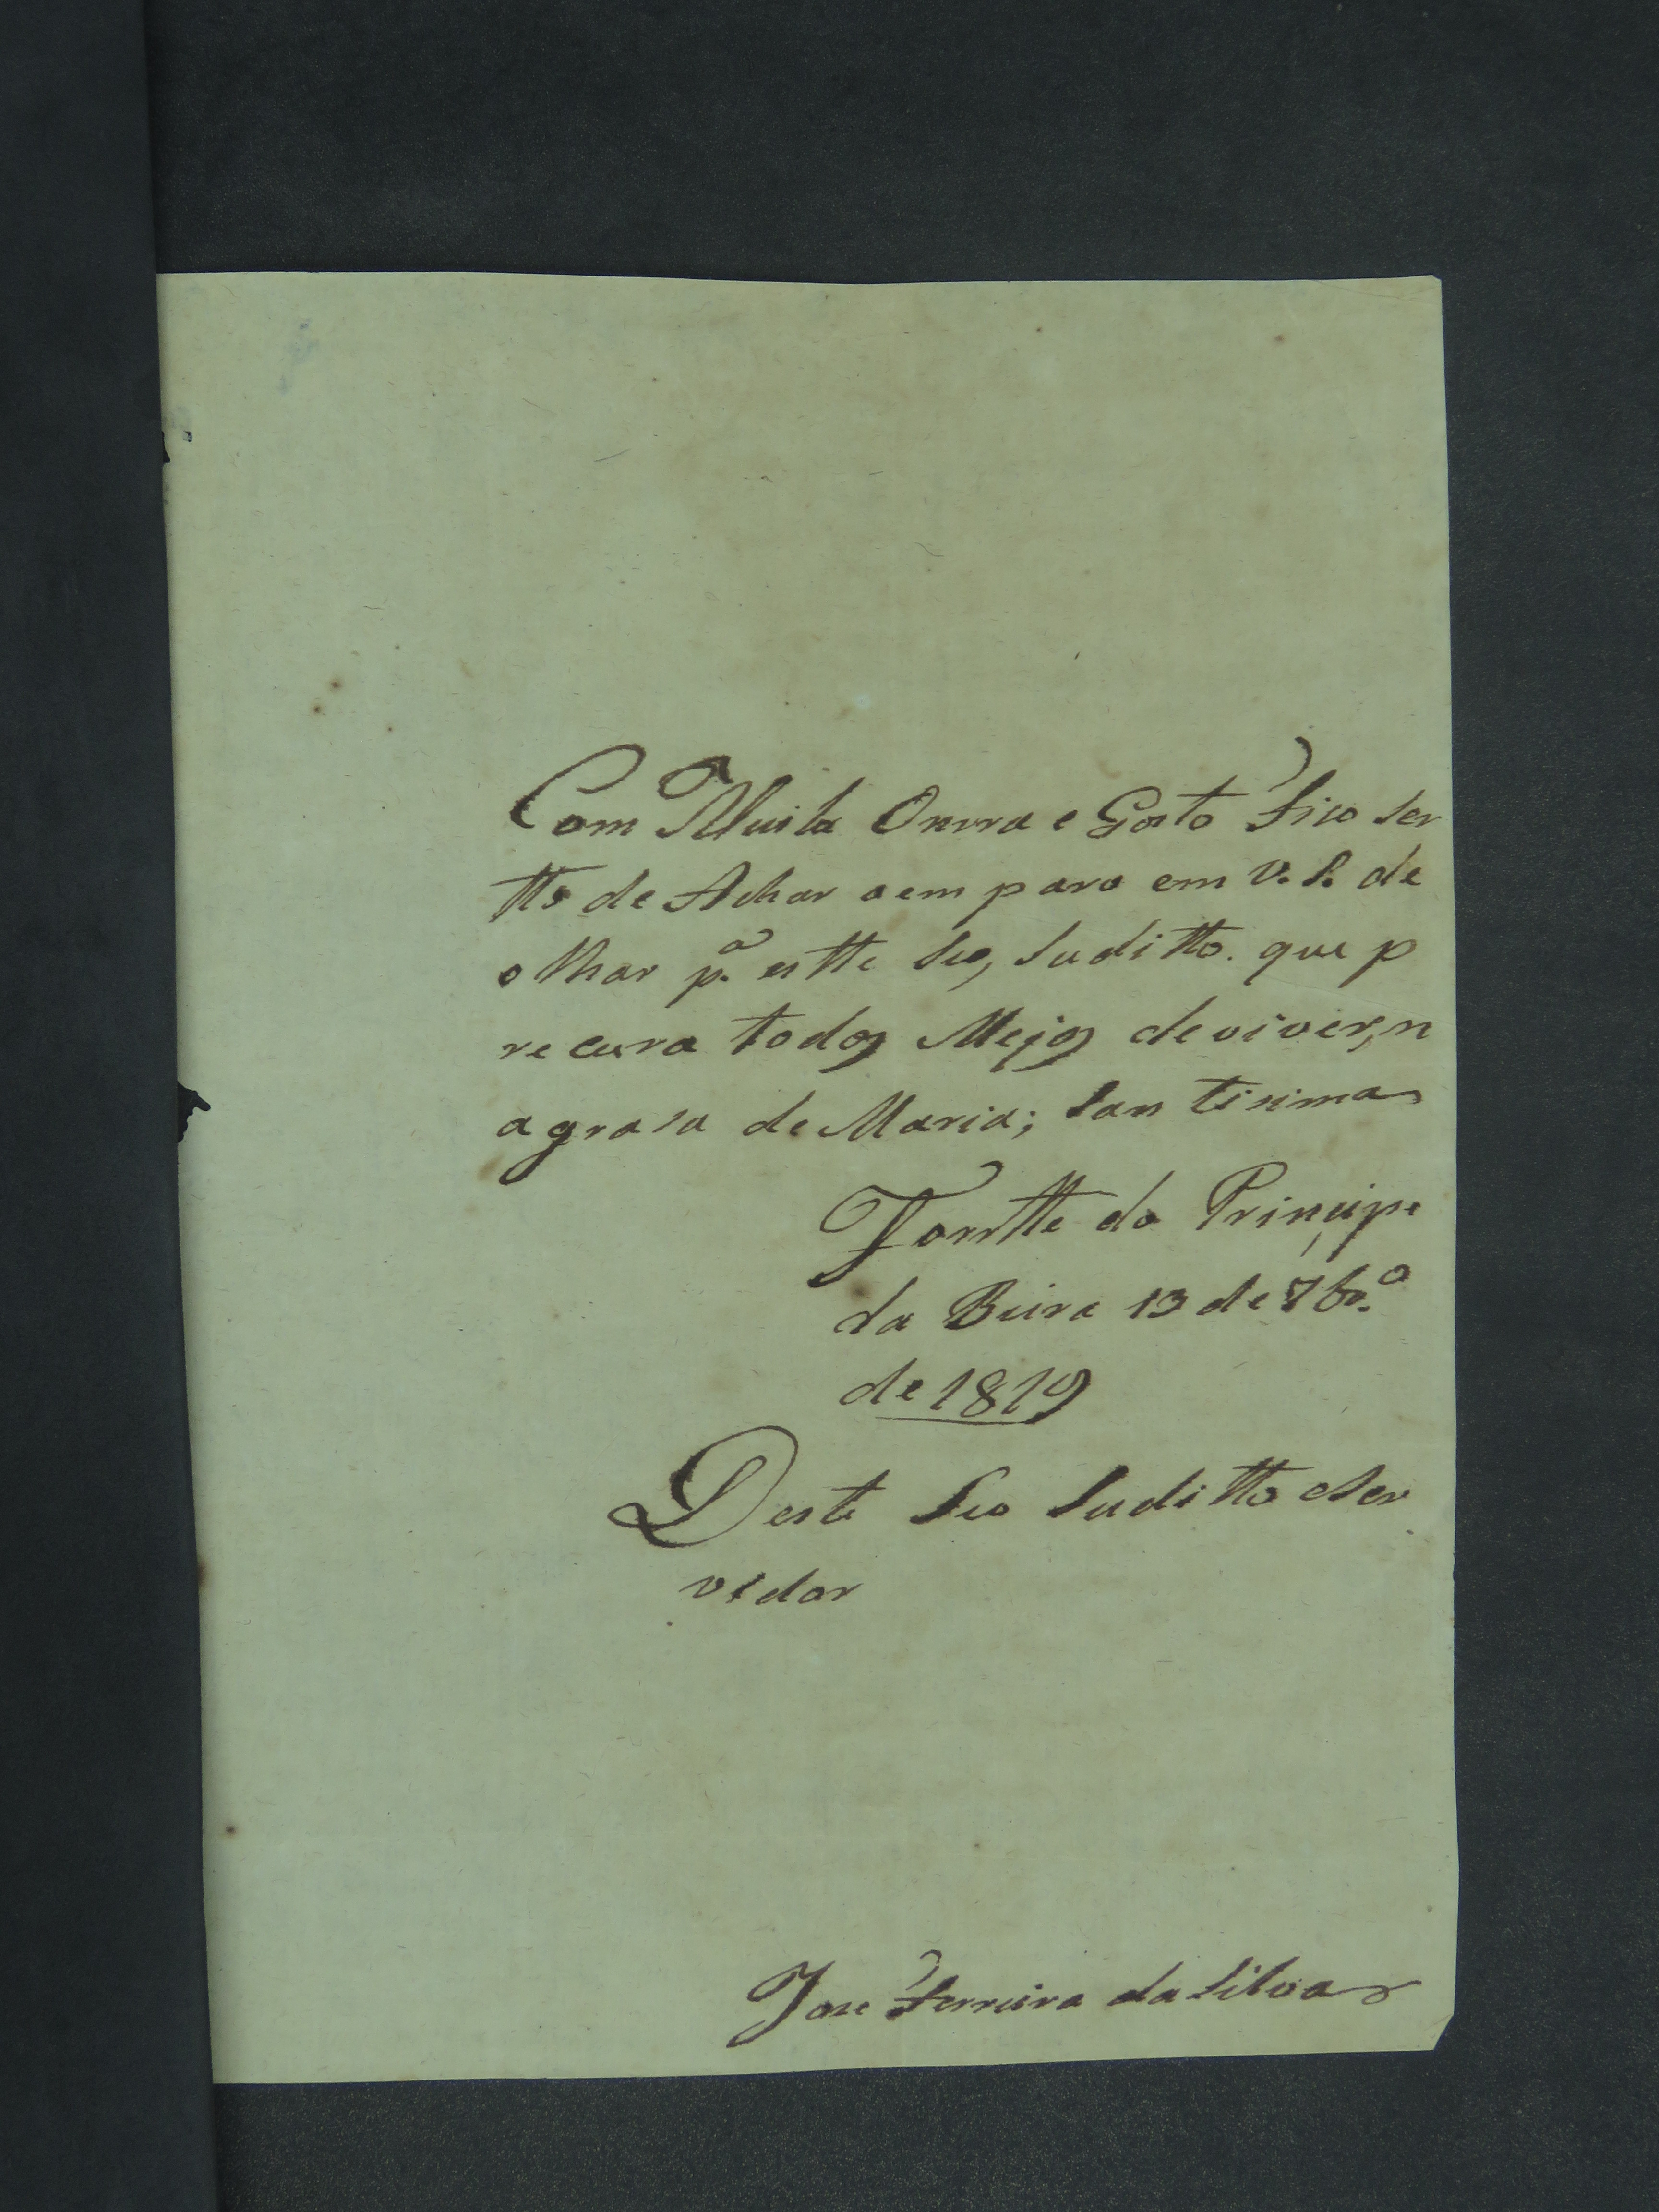 Com Muita Onrra e Gosto Fico ser
tto de Achar aemparo em V. S. de
olhar p.ª estte seo, suditto. que p
recura todos Mejos de viver, n
a grasa de Maria; san tisima
Fortte do Principe
da Beira 13 de 7br.º
de 1819
Deste seo suditto eser
vidor
Jose Ferreira da Silva